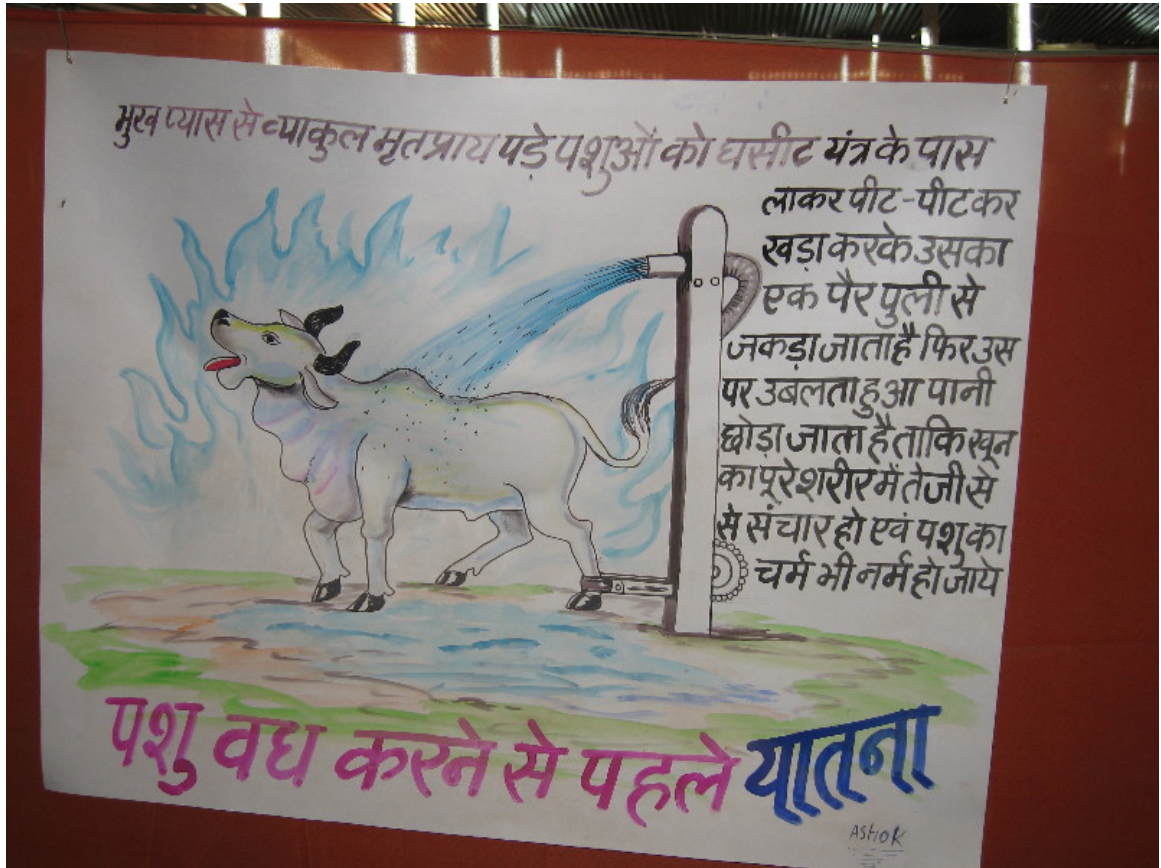 भुख प्यास से व्याकुल मृतप्राय पड़े पशुओं को घसीट यंत्र के पास
लाकर पीट-पीटकर
खड़ा करके उसका
एक पैर पुली से
जकड़ा जाता है फिर उस
पर उबलता हुआ पानी
छोड़ा जाता है ताकि खून
का पूरे शरीर में तेजी से
से संचार हो एवं पशु का
चर्म भी नर्म हो जाये
पशु वध करने से पहले यातना
ASHOK